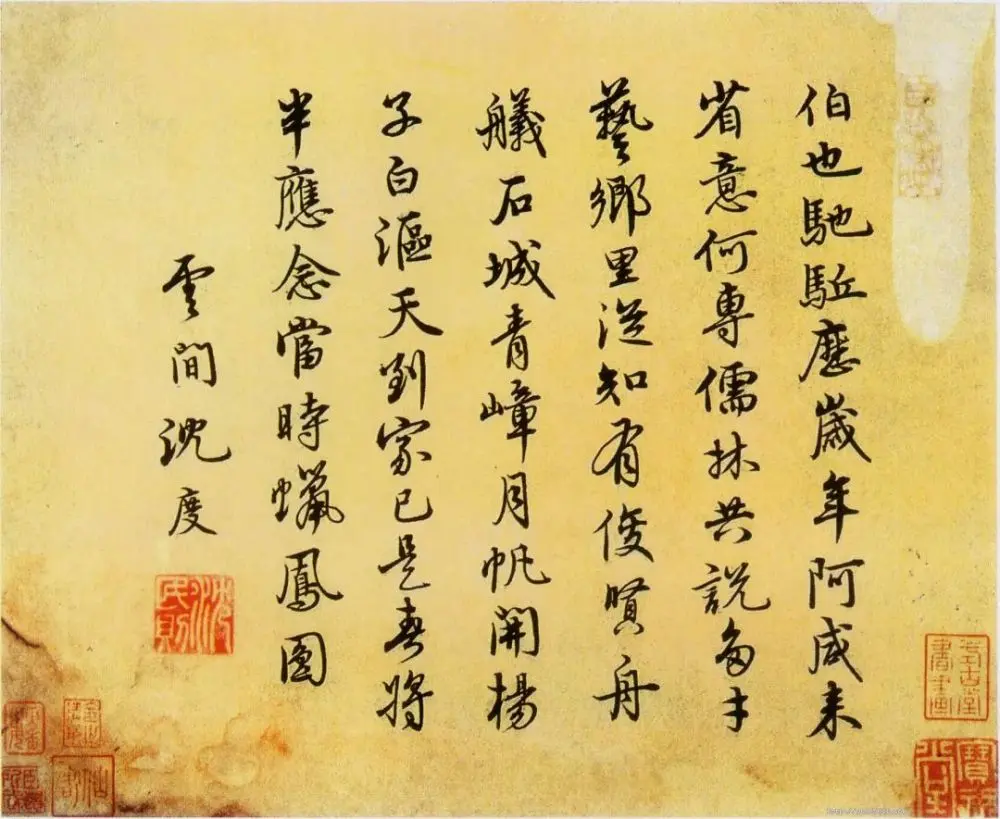 伯也馳駈歷歲年阿咸来
省意何專儒林共說多才
藝鄉里從知有俊賢舟
艤石城青嶂月帆開楊
子白漚天到家已是春將
半應念當時蠟鳳圓
雲間沈度
沈氏民則
考古堂書畫